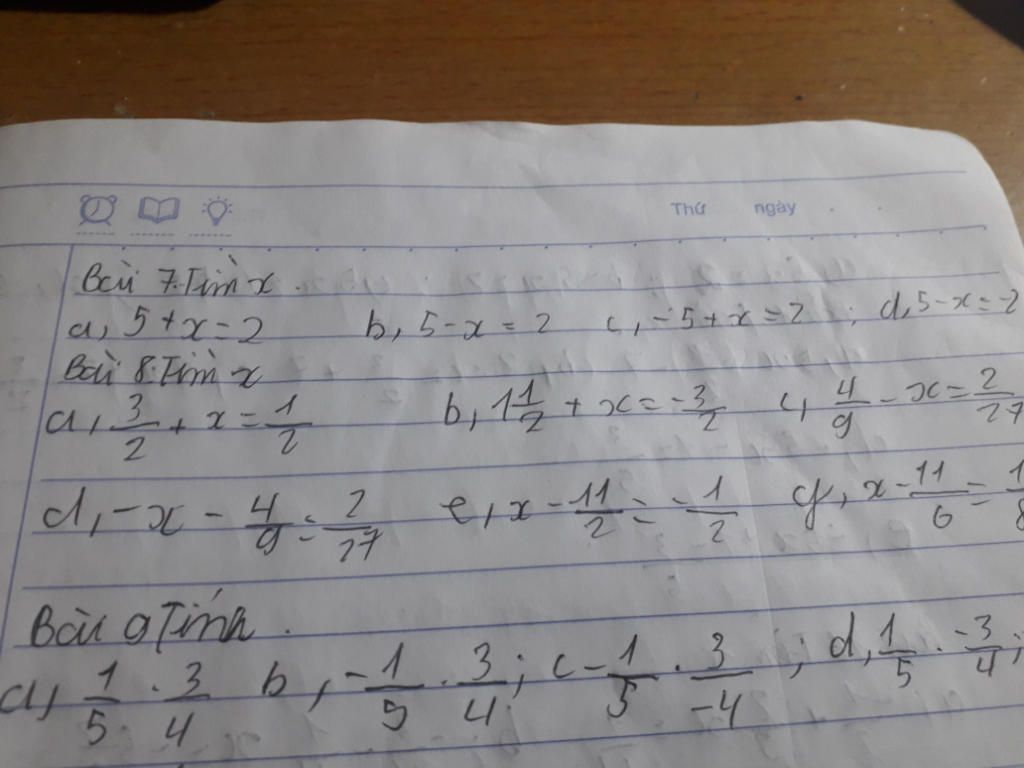 Thứ ngày
Bài 7. Tìm x.
a, 5 + x = 2 b, 5 - x = 2 c, -5 + x = 2 ; d, 5 - x = -2
Bài 8. Tìm x
a, 3/2 + x = 1/2 b, 1 1/2 + x = -3/2 c, 4/9 - x = 2/27
d, -x - 4/9 = 2/27 e, x - 11/2 = -1/2 g, x - 11/6 = 1/8
Bài 9 Tính.
a, 1/5 . 3/4 b, -1/5 . 3/4 ; c -1/5 . 3/-4 ; d, 1/5 . -3/4 ;